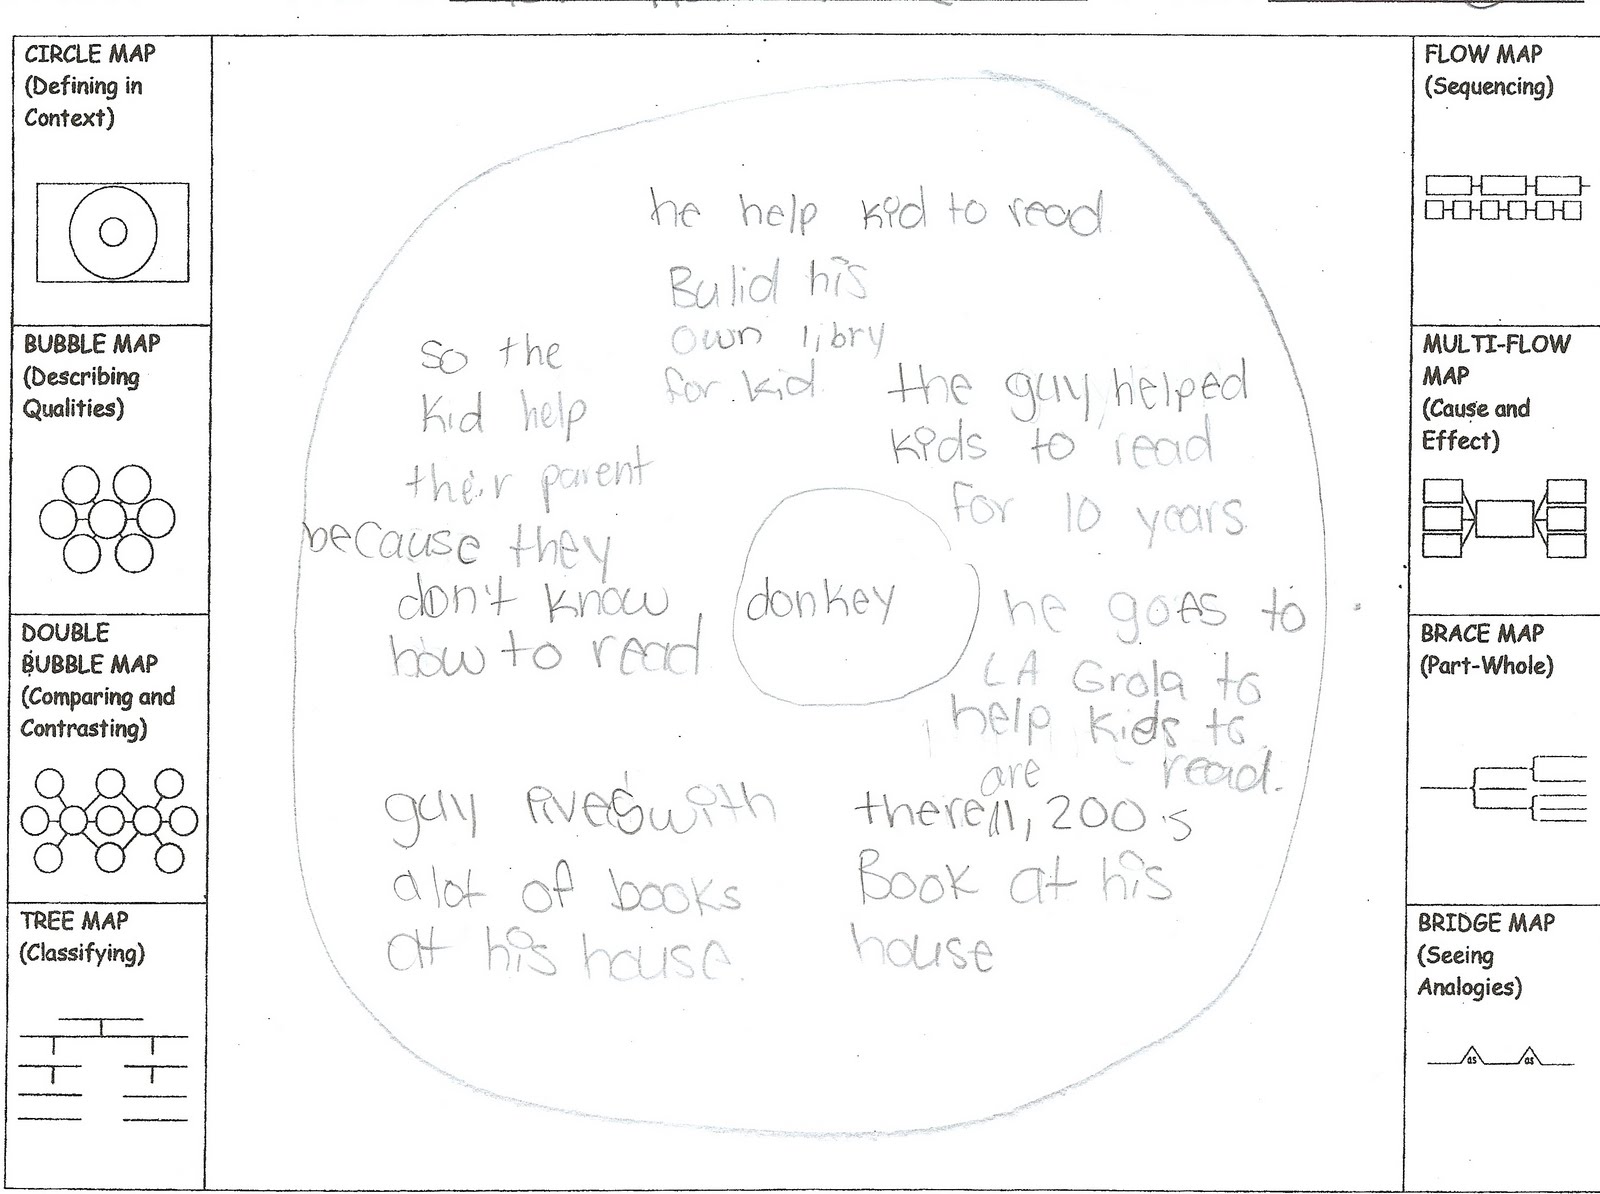 CIRCLE MAP
(Defining in
Context)
BUBBLE MAP
(Describing
Qualities)
DOUBLE
BUBBLE MAP
(Comparing and
Contrasting)
TREE MAP
(Classifying)
he help kid to read
Bulid his
own libry
for kid.
so the
kid help
their parent
because they
don't know
how to read
the guy helped
kids to read
for 10 years
donkey
he goes to
LA Grola to
help kids to
read.
guy lives with
alot of books
at his house.
are
there 11, 200 s
Book at his
house
FLOW MAP
(Sequencing)
MULTI-FLOW
MAP
(Cause and
Effect)
BRACE MAP
(Part-Whole)
BRIDGE MAP
(Seeing
Analogies)
as as